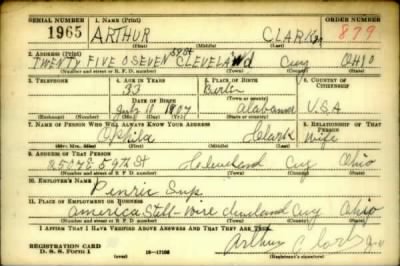 SERIAL NUMBER 1. NAME (Print) ORDER NUMBER
1965 ARTHUR CLARK 879
(First) (Middle) (Last)
2. ADDRESS (Print)
TWENTY FIVE O SEVEN 59 St CLEVELAND Cuy OHIO
(Number and street or R. F. D. number) (Town) (County) (State)
3. TELEPHONE 4. AGE IN YEARS 5. PLACE OF BIRTH 6. COUNTRY OF CITIZENSHIP
33 Berlin
DATE OF BIRTH (Town or county)
July 11 1907 Alabama U.S.A
(Exchange) (Number) (Mo.) (Day) (Yr.) (State or country)
7. NAME OF PERSON WHO WILL ALWAYS KNOW YOUR ADDRESS 8. RELATIONSHIP OF THAT PERSON
Clark Wife
(Mr., Mrs., Miss) (First) (Middle) (Last)
9. ADDRESS OF THAT PERSON
2507 E 59th St Cleveland Cuy Ohio
(Number and street or R. F. D. number) (Town) (County) (State)
10. EMPLOYER'S NAME
11. PLACE OF EMPLOYMENT OR BUSINESS
America Still-Wire Cleveland Cuy Ohio
(Number and street or R. F. D. number) (Town) (County) (State)
I AFFIRM THAT I HAVE VERIFIED ABOVE ANSWERS AND THAT THEY ARE TRUE.
REGISTRATION CARD
D. S. S. Form 1 16—17105 Arthur Clark
(Registrant's signature)